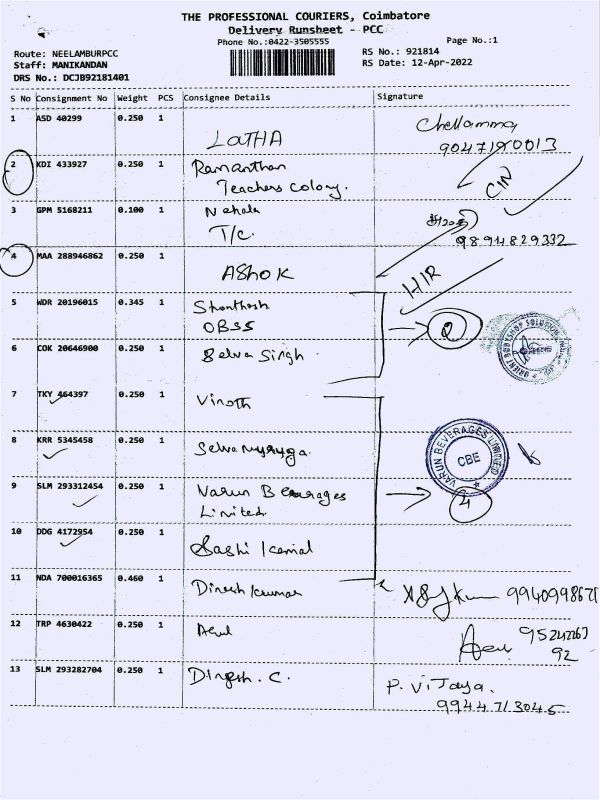 THE PROFESSIONAL COURIERS, Coimbatore
Delivery Runsheet - PCC
Phone No.:0422-3505555
Page No.:1
Route: NEELAMBURPCC
RS No.: 921814
Staff: MANIKANDAN
RS Date: 12-Apr-2022
DRS No.: DCJB92181401
S No Consignment No Weight PCS Consignee Details Signature
1 ASD 40299 0.250 1 LATHA Chellamma
2 KDI 433927 0.250 1 Ramanthan
Teachers Colony.
CIN
3 GPM 5168211 0.100 1 Nehala
T/c.
9894829332
4 MAA 288946862 0.250 1 ASHOK
H/R
5 WDR 20196015 0.345 1 Shonthosh
OBSS
2
6 COK 20646900 0.250 1 Selva Singh.
7 TKY 464397 0.250 1 Vinoth
8 KRR 5345458 0.250 1
VARUN BEVERAGES LIMITED
CBE
9 SLM 293312454 0.250 1 Varun Beverages
Limited
4
10 DDG 4172954 0.250 1 Sashi Kamal
11 NDA 700016365 0.460 1 Dinesh kumar
12 TRP 4630422 0.250 1
92
13 SLM 293282704 0.250 1 Dinesh. C. P. Vijaya.
9944713045